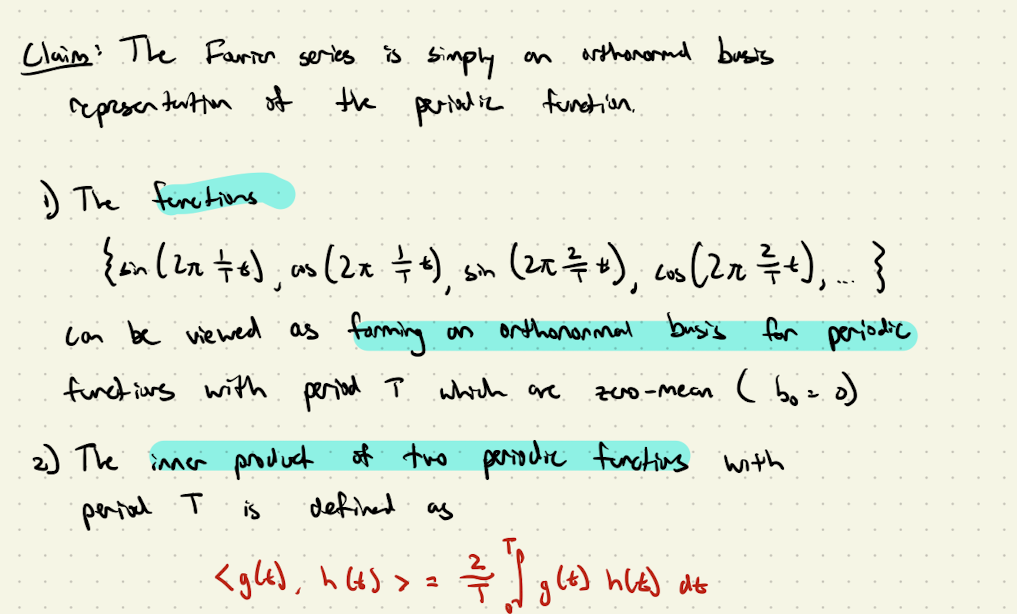 Claim: The Fourier series is simply an orthonormal basis
representation of the periodic function.
1) The functions
{sin(2π 1/T t), cos(2π 1/T t), sin(2π 2/T t), cos(2π 2/T t), ... }
can be viewed as forming an orthonormal basis for periodic
functions with period T which are zero-mean (b₀ = 0)
2) The inner product of two periodic functions with
period T is defined as
<g(t), h(t)> = 2/T ∫₀ᵀ g(t) h(t) dt